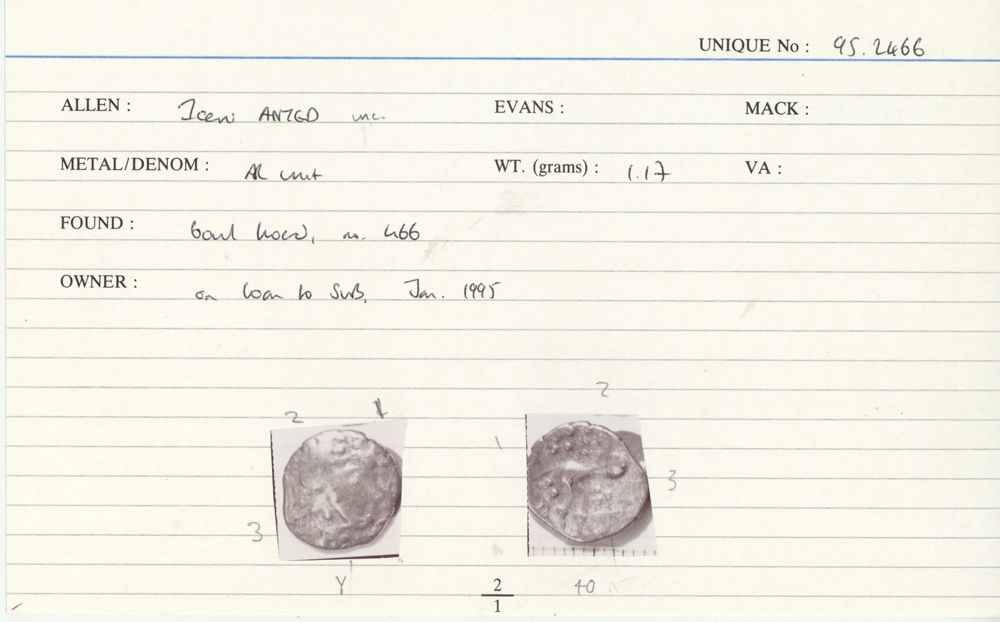 UNIQUE No : 95.2466
ALLEN : Iceni ANTED unc. EVANS : MACK :
METAL/DENOM : AR unit WT. (grams) : 1.17 VA :
FOUND : bowl hoard, no. 466
OWNER : on loan to SUB, Jan. 1995
2 1 2
1
3 3
Y 2/1 40